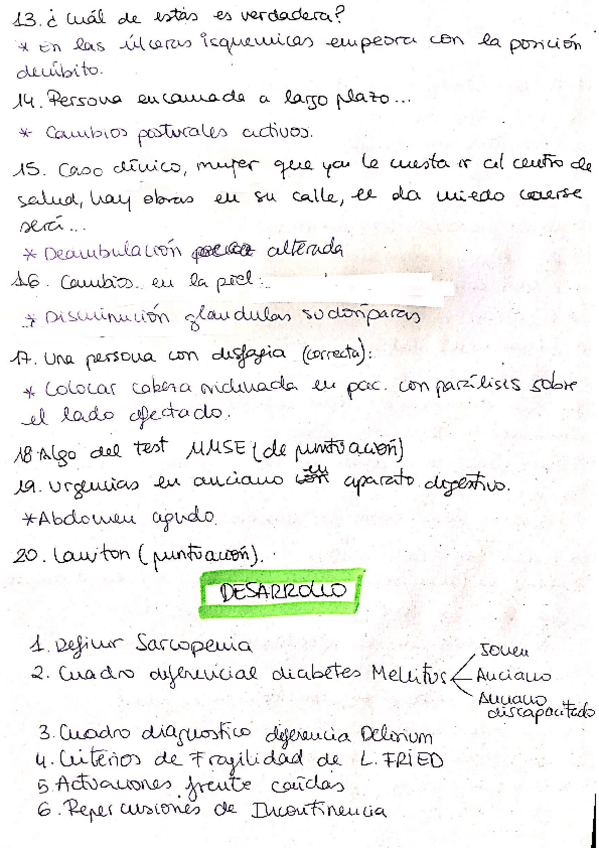 13. ¿Cuál de estas es verdadera?
* En las úlceras isquemicas empeora con la posición
decúbito.
14. Persona encamada a largo plazo...
* Cambios posturales activos.
15. Caso clínico, mujer que ya le cuesta ir al centro de
salud, hay obras en su calle, le da miedo caerse
será...
* Deambulación alterada
16. Cambios en la piel:
* Disminución glándulas sudoríparas
17. Una persona con disfagia (correcta):
* Colocar cabeza inclinada en pac. con parálisis sobre
el lado afectado.
18 Algo del test MMSE (de puntuación)
19. Urgencias en anciano aparato digestivo.
* Abdomen agudo.
20. Lawton (puntuación).
DESARROLLO
1. Definir Sarcopenia
2. Cuadro diferencial diabetes Mellitus
Joven
Anciano
Anciano
discapacitado
3. Cuadro diagnostico diferencia Delirium
4. Criterios de Fragilidad de L. FRIED
5 Actuaciones frente caídas
6. Repercusiones de Incontinencia